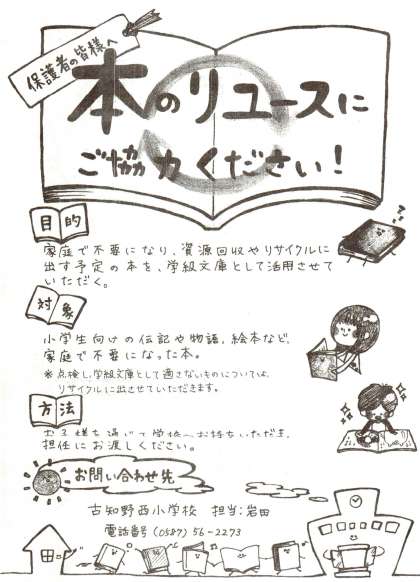 保護者の皆様へ
本のリユースに
ご協力ください!
目的
家庭で不要になり、資源回収やリサイクルに
出す予定の本を、学級文庫として活用させて
いただく。
対象
小学生向けの伝記や物語、絵本など、
家庭で不要になった本。
※点検し、学級文庫として適さないものについては、
リサイクルに出させていただきます。
方法
お子様を通じて学校へお持ちいただき、
担任にお渡しください。
お問い合わせ先
古知野西小学校 担当:岩田
電話番号(0587)56-2273